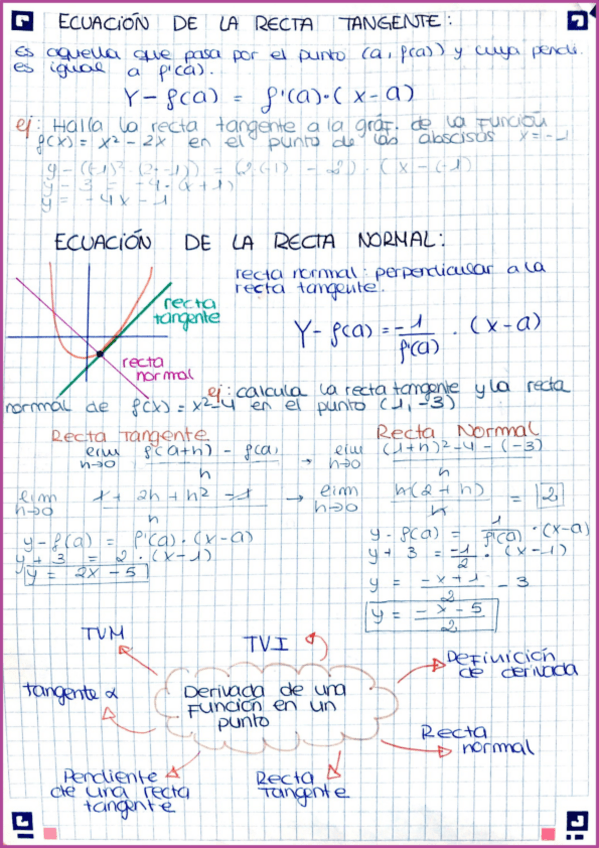 ECUACIÓN DE LA RECTA TANGENTE:
es aquella que pasa por el punto (a, f(a)) y cuya pendi.
es igual a f'(a).
Y-f(a) = f'(a)·(x-a)
ej: Halla la recta tangente a la gráf. de la función
f(x) = x² - 2x en el punto de las abscisas x=-1
y - 3 = -4·(x+1)
y = -4x - 1
ECUACIÓN DE LA RECTA NORMAL:
recta normal: perpendicular a la
recta tangente.
recta
tangente
Y-f(a) = -1/f'(a) · (x-a)
recta
normal
ej: calcula la recta tangente y la recta
normal de f(x) = x²-4 en el punto (1,-3)
Recta Tangente
Recta Normal
lim h→0 f(a+h) - f(a) / h → lim h→0 (1+h)² - 4 - (-3) / h
lim h→0 1 + 2h + h² - 1 / h → lim h→0 h(2+h) / h = 2
y - f(a) = f'(a)·(x-a)
y + 3 = 2·(x-1)
y = 2x - 5
y - f(a) = 1/f'(a) ·(x-a)
y + 3 = -1/2 · (x-1)
y = -x+1/2 - 3
y = -x-5/2
TVM
TVI
Definición
de derivada
tangente α
Derivada de una
Función en un
punto
Recta
normal
Pendiente
de una recta
tangente
Recta
Tangente